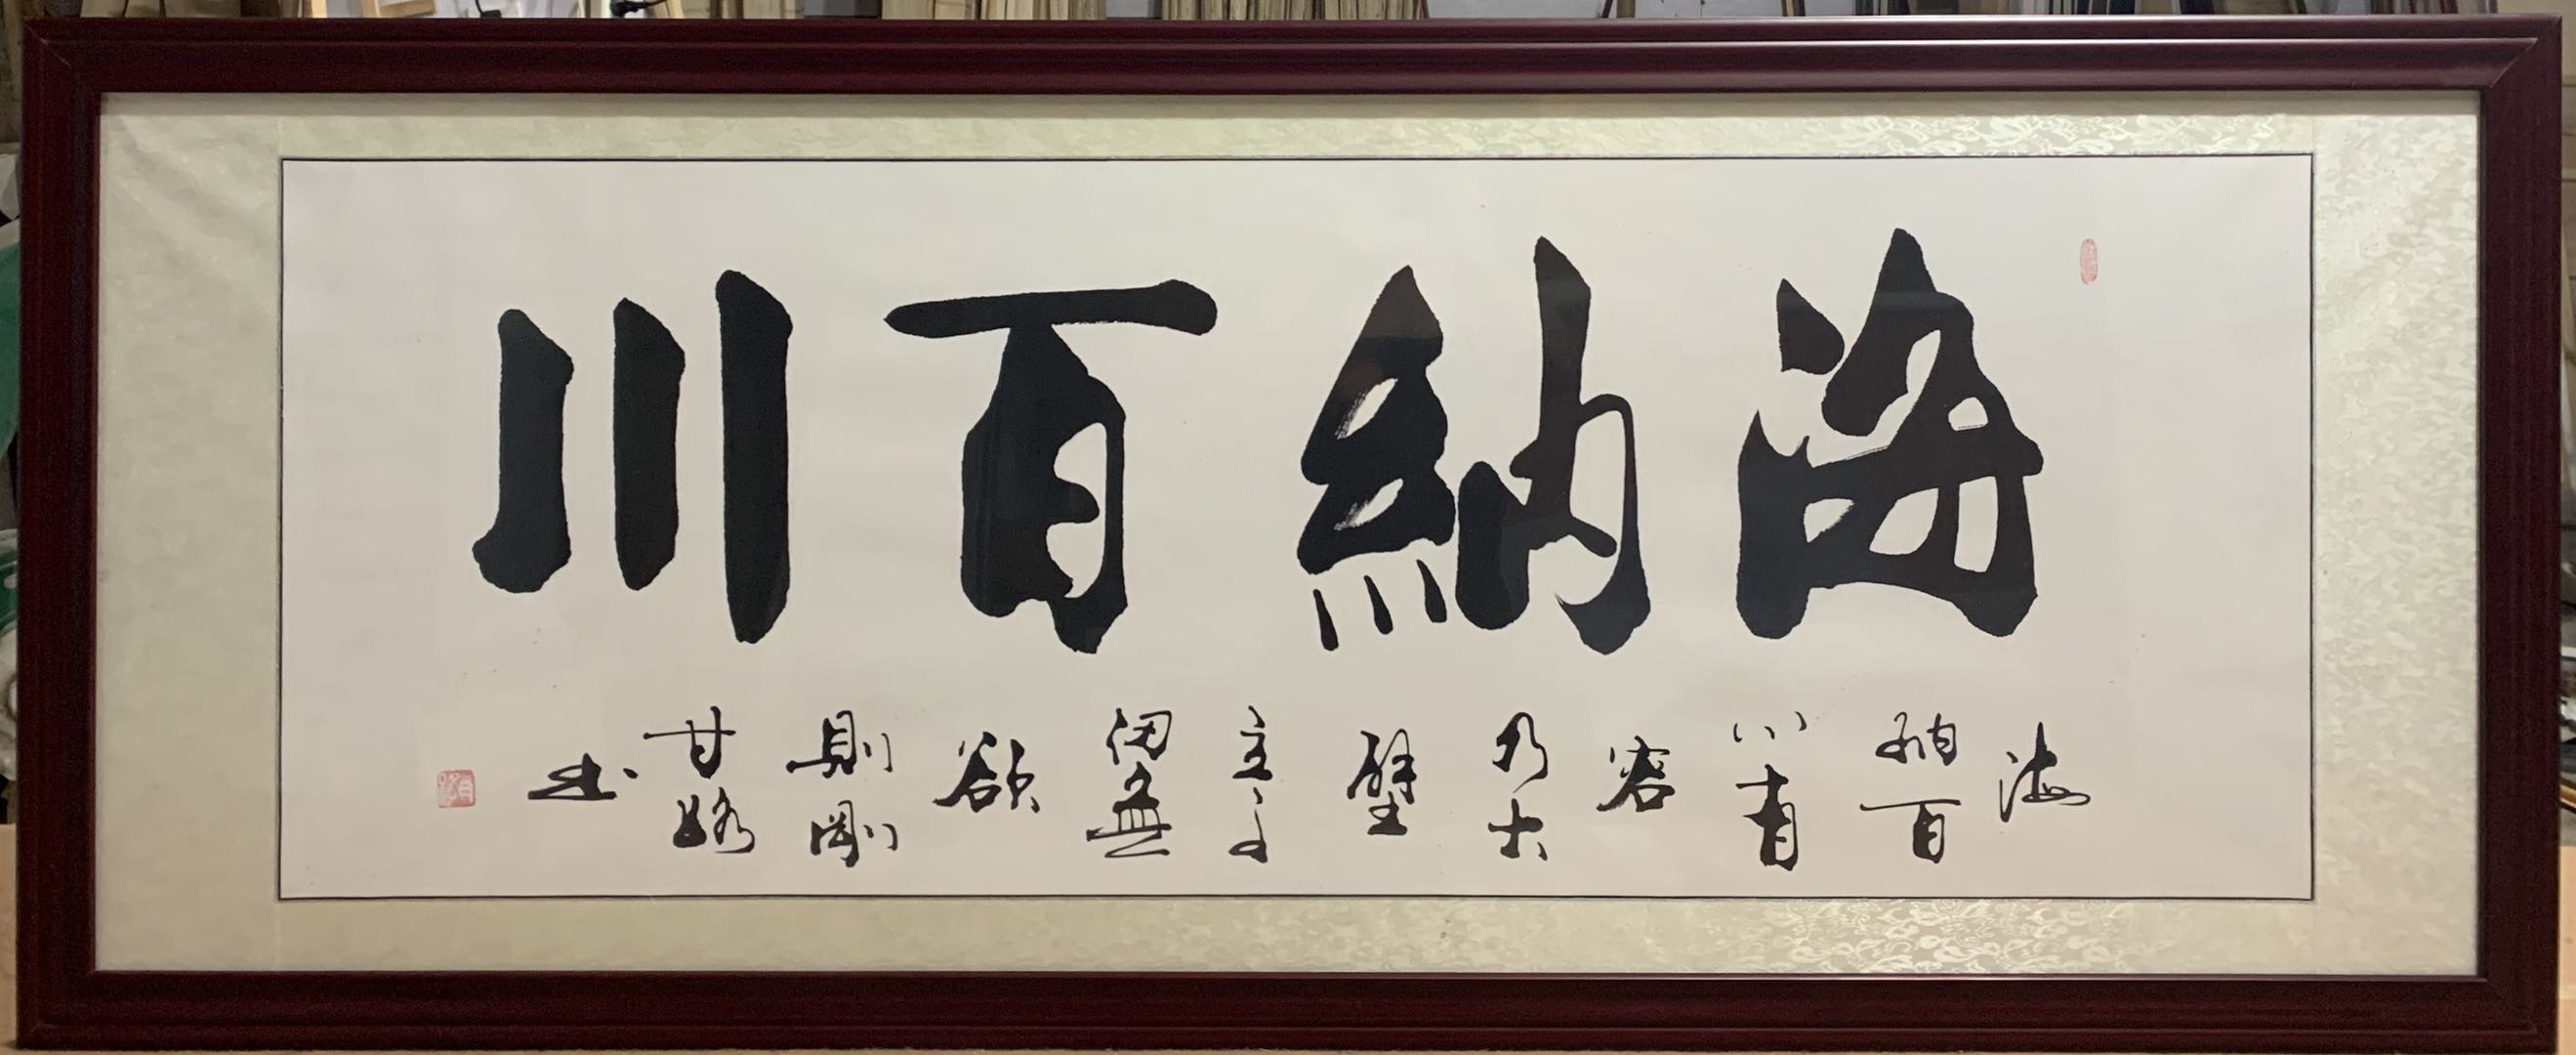 海納百川
海
納百
川有
容
乃大
壁
立千
仞無
欲
則剛
甘路
书